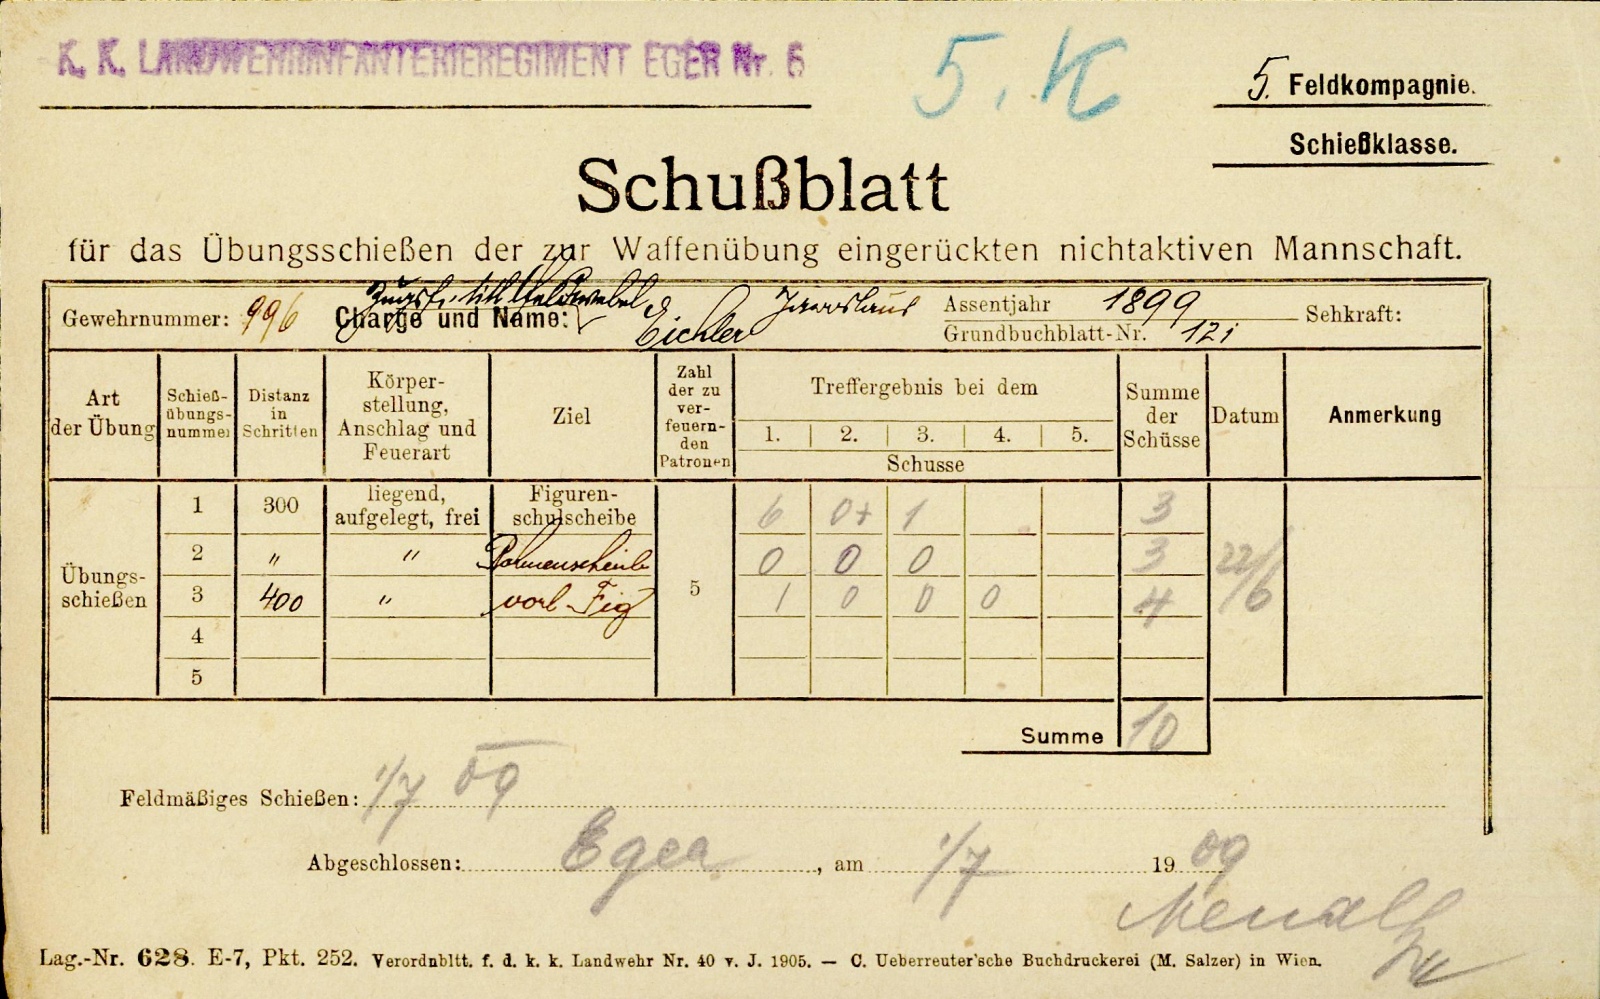 K. K. LANDWEHRINFANTERIEREGIMENT EGER Nr. 6
5. K
5. Feldkompagnie.
Schießklasse.
Schußblatt
für das Übungsschießen der zur Waffenübung eingerückten nichtaktiven Mannschaft.
Gewehrnummer: 996 Charge und Name: Zugsf. tit. Feldwebel Eichler Jaroslaus Assentjahr 1899 Sehkraft:
Grundbuchblatt-Nr. 121
Art der Übung Schieß-übungs-nummer Distanz in Schritten Körper-stellung, Anschlag und Feuerart Ziel Zahl der zu ver-feuern-den Patronen Treffergebnis bei dem Summe der Schüsse Datum Anmerkung
1. 2. 3. 4. 5.
Schusse
Übungs-schießen 5
1 300 liegend, aufgelegt, frei Figuren-schulscheibe 6 0+ 1 3
2 " " 0 0 0 3 22/6
3 400 " vorl. Fig 1 0 0 0 4
4
5
Summe 10
Feldmäßiges Schießen: 1/7 09
Abgeschlossen: Eger, am 1/7 1909
Lag.-Nr. 628. E-7, Pkt. 252. Verordnbltt. f. d. k. k. Landwehr Nr. 40 v. J. 1905. — C. Ueberreuter'sche Buchdruckerei (M. Salzer) in Wien.